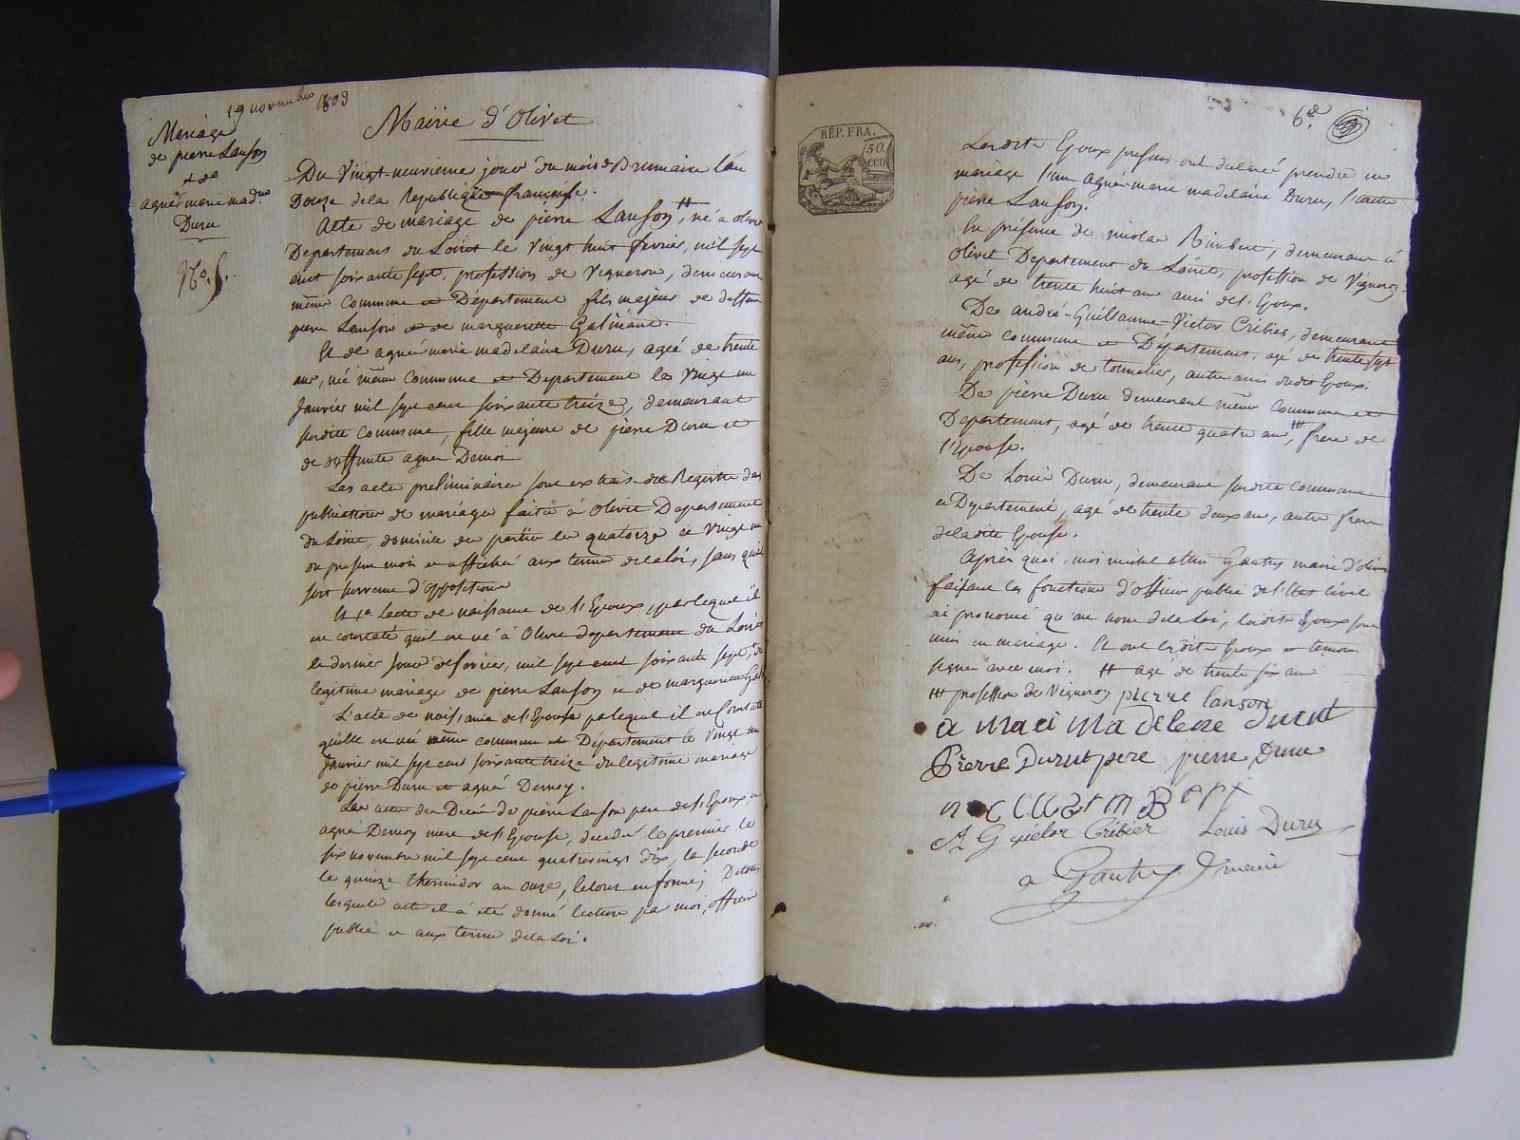 19 novembre 1803
Mariage
de pierre Lanson
et de
agnés marie mad.ne
Duru
No. 5.
Mairie d'Olivet
Du Vingt-neuvieme jour du mois de Brumaire l'an
Douze de la Republique francaise.
Acte de mariage de pierre Lanson, # né a olivet
Departement du Loiret le Vingt huit fevrier, mil sept
cent soixante sept, profession de Vigneron, demeurant
même Commune et Departement fils majeur de deffunt
pierre Lanson et de marguerite Galiniane.
Et de agnés marie madelaine Duru, agée de trente
ans, née même Commune et Departement le Vingt un
Janvier mil sept cent soixante treize, demeurant
susdite Commune, fille majeure de pierre Duru et
de deffunte agnés Demoi
Les acte preliminaires sont extrais des Registre des
publications de mariages faitte à Olivet Departement
du Loiret, domicile des parties le quatorze et Vingt un
du present mois et affiché aux terme de la loi, sans quil
soit survenu d'opposition
Lacte de naissance de l'Epoux par lequel il
en constaté quil est né à Olivet departement du Loiret
le dernier jour de fevrier, mil sept cent soixante sept, du
legitime mariage de pierre Lanson et de marguerite Gal
L'acte de naissance de l'Epouse par lequel il en Constaté
quelle est née même commune et Département le Vingt un
Janvier mil sept cent soixante treize du legitime mariage
de pierre Duru et agnés Demoy.
Les acte des Décés de pierre Lanson pere de l'Epoux, et
agnés Demoy mere de l'Epouse, decedés le premier le
six novembre mil sept cent quatrevingt dix, la seconde
le quinze thermidor an onze, le tout en forme; De tous
lesquels acte il a été donné lecture par moi, officier
public et aux terme de la Loi.
6e
RÉP. FRA.
50.
CEN
Lesdits Epoux presens ont declaré prendre en
mariage l'un agnés marie madelaine Duru, l'autre
pierre Lanson.
En présence de nicolas Rimbert, demeurant à
Olivet Departement du Loiret, profession de Vigneron,
agé de trente huit ans ami de l'Epoux.
De andré-Guillaume-Victor Cribier, demeurant
même commune et Département, agé de trente sept
ans, profession de tonnelier, autre ami dudit Epoux.
De pierre Duru demeurant même Commune et
Département, agé de trente quatre ans, ### frere de
l'Epouse.
De Louis Duru, demeurant susdite commune
et Departement, agé de trente deux ans, autre frere
de ladite Epouse.
Après quoi, moi michel Gautry maire d'olivet
faisant les fonctions d'officier public de l'Etat Civil
ai prononcé qu'au nom de la loi, lesdits Epoux sont
unis en mariage. Et ont lesdits Epoux et temoins
signés avec moi. # agé de trente six ans
### profession de Vigneron pierre lanson
a Marei Madeleine Durut
Pierre Durut pere pierre Duru
A G victor Cribier Louis Duru
Gautry maire